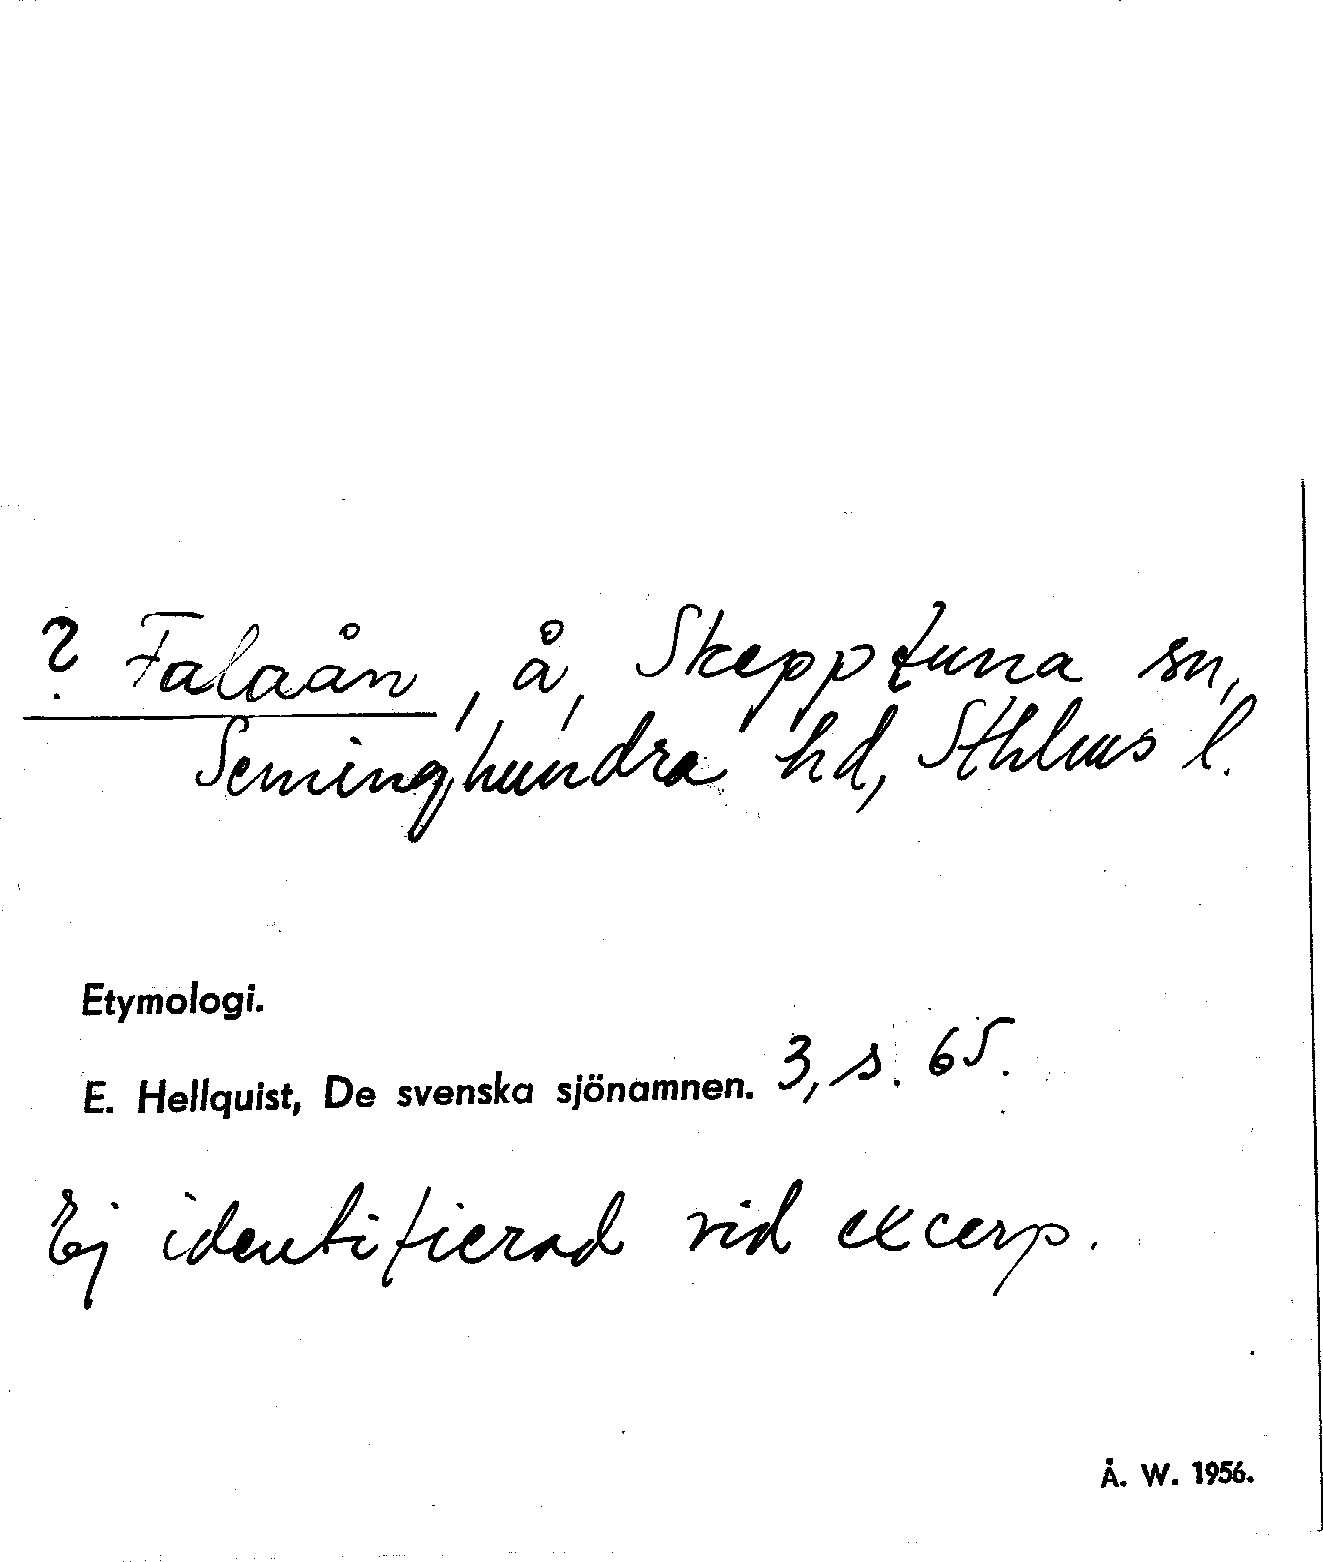 ? Falaån, å, Skepptuna sn,
Seminghundra hd, Sthlms l.
Etymologi.
E. Hellquist, De svenska sjönamnen. 3, s. 65.
Ej identifierad vid excerp.
Å. W. 1956.